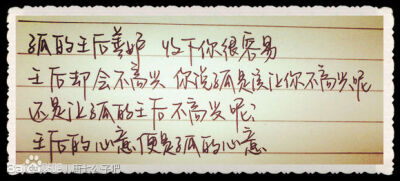 孤的王后善妒 收下你很容易
王后却会不高兴 你说孤是该让你不高兴呢
还是让孤的王后不高兴呢？
王后的心意便是孤的心意